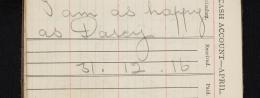 I am as happy
as Daisy
31.12.16
CASH ACCOUNT—APRIL.
Received.
Paid.